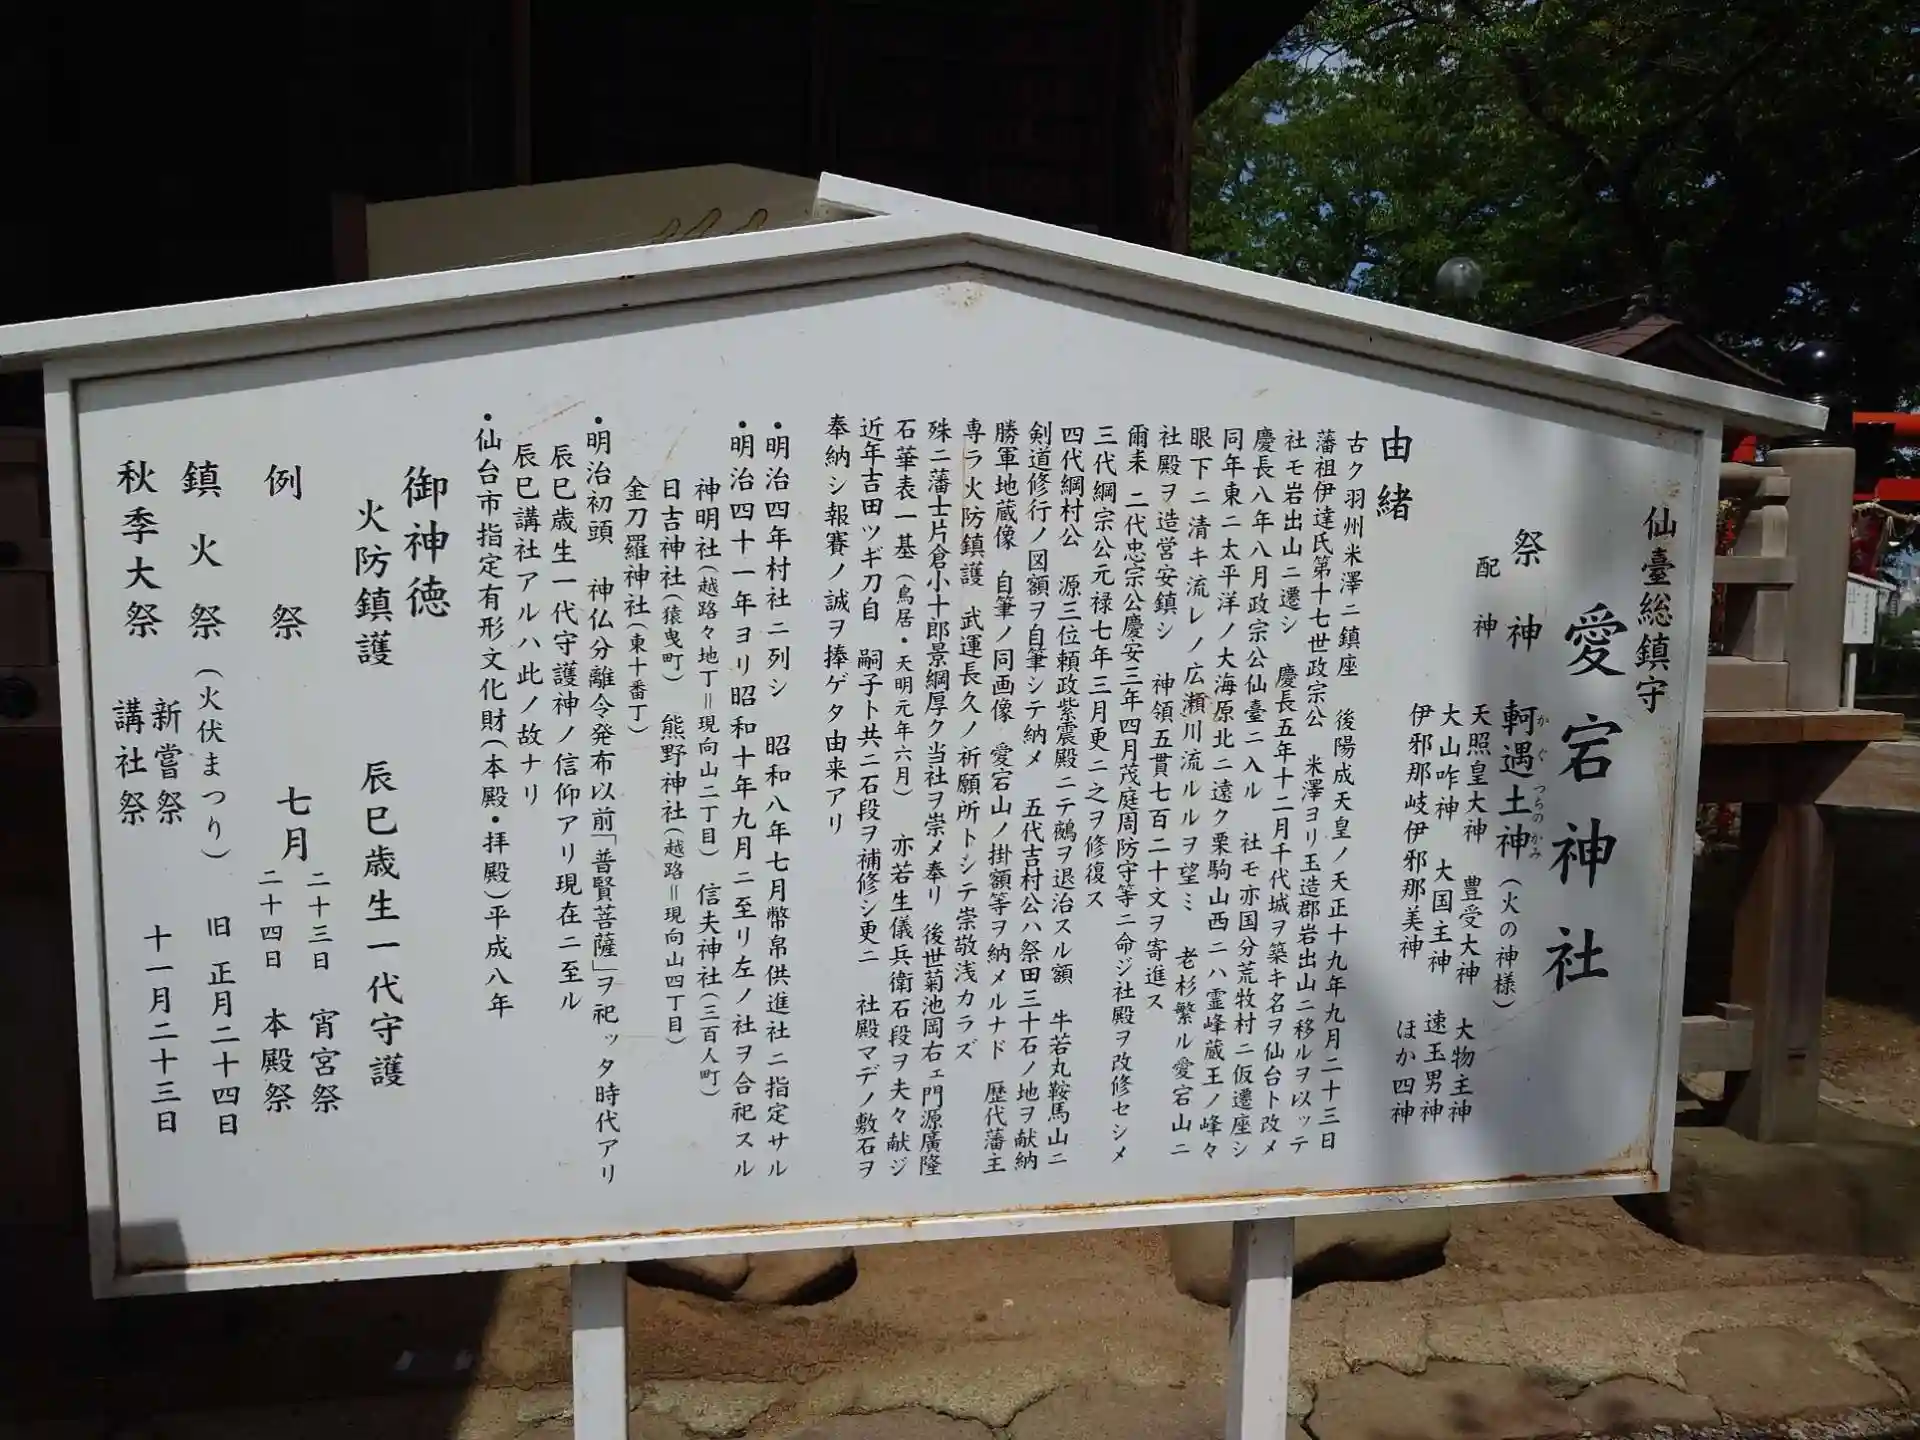 仙臺総鎮守
愛宕神社
祭神　軻遇土神（火の神様）
か　ぐ　つちのかみ
配神　天照皇大神　豊受大神　大物主神
大山咋神　大国主神　速玉男神
伊邪那岐伊邪那美神　ほか四神
由緒
古ク羽州米澤ニ鎮座　後陽成天皇ノ天正十九年九月二十三日
藩祖伊達氏第十七世政宗公　米澤ヨリ玉造郡岩出山ニ移ルヲ以ッテ
社モ岩出山ニ遷シ　慶長五年十二月千代城ヲ築キ名ヲ仙台ト改メ
慶長八年八月政宗公仙臺ニ入ル　社モ亦国分荒牧村ニ仮遷座シ
同年東ニ太平洋ノ大海原北ニ遠ク栗駒山西ニハ霊峰蔵王ノ峰々
眼下ニ清キ流レノ広瀬川流ルルヲ望ミ　老杉繁ル愛宕山ニ
社殿ヲ造営安鎮シ　神領五貫七百二十文ヲ寄進ス
爾来　二代忠宗公慶安三年四月茂庭周防守等ニ命ジ社殿ヲ改修セシメ
三代綱宗公元禄七年三月更ニ之ヲ修復ス
四代綱村公　源三位頼政紫震殿ニテ鵺ヲ退治スル額　牛若丸鞍馬山ニ
剣道修行ノ図額ヲ自筆シテ納メ　五代吉村公ハ祭田三十石ノ地ヲ献納
勝軍地蔵像　自筆ノ同画像　愛宕山ノ掛額等ヲ納メルナド　歴代藩主
専ラ火防鎮護　武運長久ノ祈願所トシテ崇敬浅カラズ
殊ニ藩士片倉小十郎景綱厚ク当社ヲ崇メ奉リ　後世菊池岡右ェ門源廣隆
石華表一基（鳥居・天明元年六月）　亦若生儀兵衛石段ヲ夫々献ジ
近年吉田ツギ刀自　嗣子ト共ニ石段ヲ補修シ更ニ　社殿マデノ敷石ヲ
奉納シ報賽ノ誠ヲ捧ゲタ由来アリ
・明治四年村社ニ列シ　昭和八年七月幣帛供進社ニ指定サル
・明治四十一年ヨリ昭和十年九月ニ至リ左ノ社ヲ合祀スル
神明社（越路々地丁＝現向山二丁目）　信夫神社（三百人町）
日吉神社（猿曳町）　熊野神社（越路＝現向山四丁目）
金刀羅神社（東十番丁）
・明治初頭　神仏分離令発布以前「普賢菩薩」ヲ祀ッタ時代アリ
辰巳歳生一代守護神ノ信仰アリ現在ニ至ル
辰巳講社アルハ此ノ故ナリ
・仙台市指定有形文化財（本殿・拝殿）平成八年
御神徳
火防鎮護　辰巳歳生一代守護
例祭　七月　二十三日　宵宮祭
二十四日　本殿祭
鎮火祭（火伏まつり）　旧正月二十四日
秋季大祭　新嘗祭　十一月二十三日
講社祭